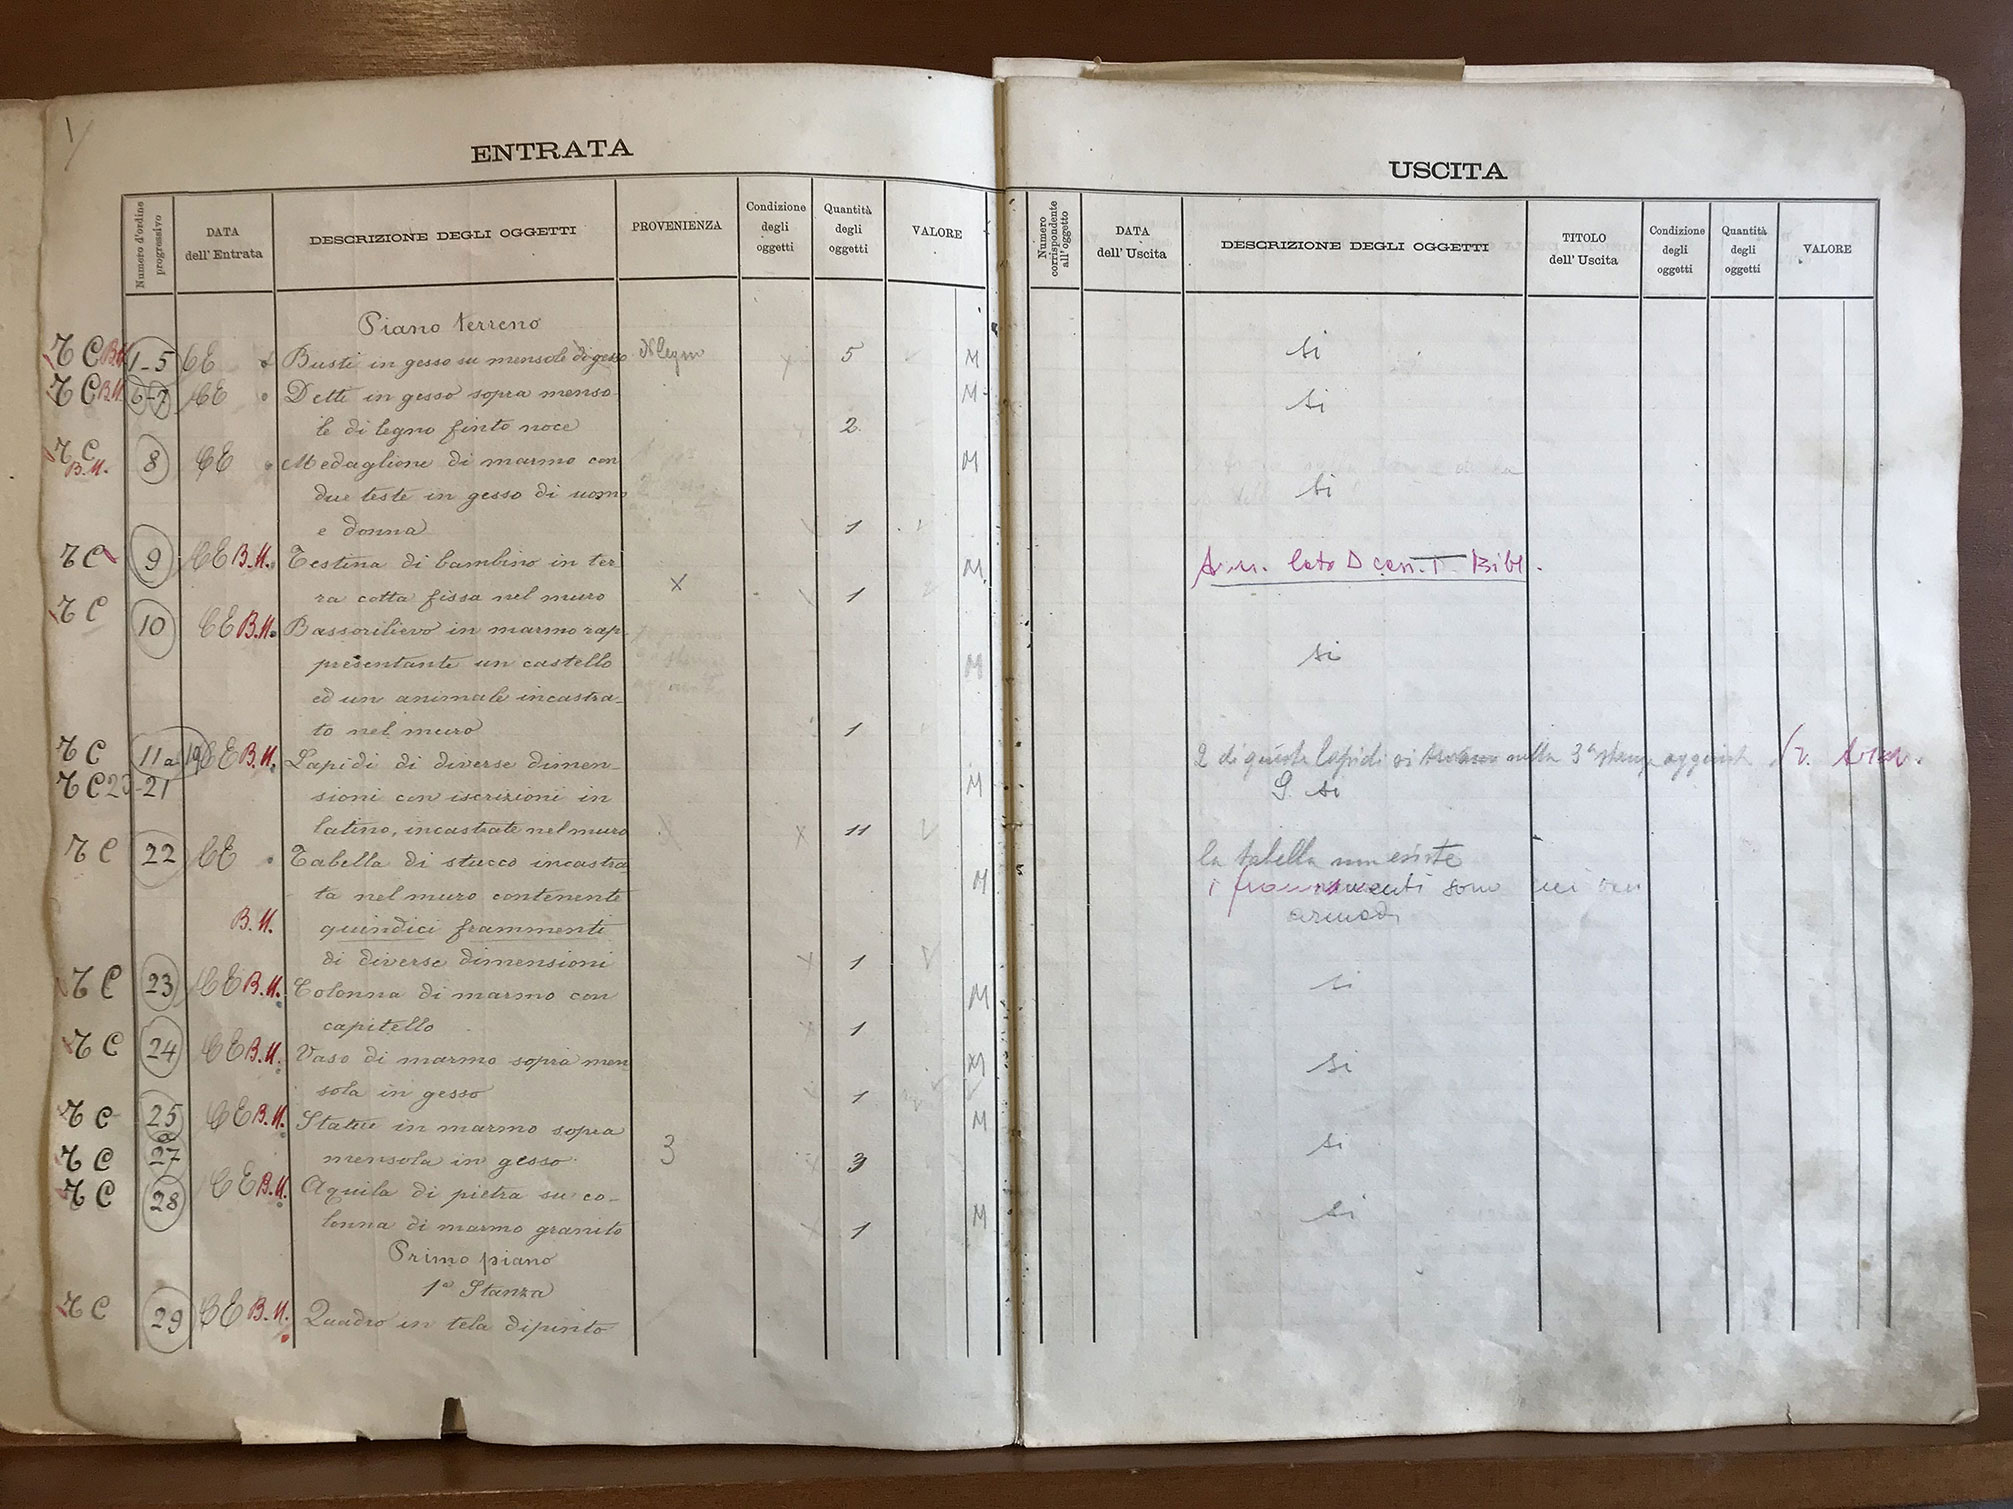 ENTRATA
Numero d'ordine progressivo
DATA dell' Entrata
DESCRIZIONE DEGLI OGGETTI
PROVENIENZA
Condizione degli oggetti
Quantità degli oggetti
VALORE
Piano terreno
TC B.M. 1-5 CE Busti in gesso su mensole di gesso 5 M
TC B.M. 6-7 CE Detti in gesso sopra menso- M
le di legno finto noce 2
TC B.M. 8 CE Medaglione di marmo con M
due teste in gesso di uomo
e donna 1
TC 9 CE B.M. Testina di bambino in ter- M
ra cotta fissa nel muro X 1
TC 10 CE B.M. Bassorilievo in marmo rap-
presentante un castello M
ed un animale incastra-
to nel muro 1
TC 11 a 19 CE B.M. Lapidi di diverse dimen-
TC 20-21 sioni con iscrizioni in M
latino, incastrate nel muro X 11
TC 22 CE Tabella di stucco incastra-
ta nel muro contenente M
B.M. quindici frammenti
di diverse dimensioni 1
TC 23 CE B.M. Colonna di marmo con M
capitello 1
TC 24 CE B.M. Vaso di marmo sopra men- M
sola in gesso 1
TC 25 CE B.M. Statue in marmo sopra M
TC a 27 mensola in gesso 3 3
TC 28 CE B.M. Aquila di pietra su co- M
lonna di marmo granito 1
Primo piano
1ª Stanza
TC 29 CE B.M. Quadro in tela dipinto
USCITA
Numero corrispondente all' oggetto
DATA dell' Uscita
DESCRIZIONE DEGLI OGGETTI
TITOLO dell' Uscita
Condizione degli oggetti
Quantità degli oggetti
VALORE
si
si
si
lato D Bibl.
si
2 di queste lapidi si trovano nella 3ª stanza
9 si
la tabella non esiste
i frammenti sono nei
armadi
si
si
si
si